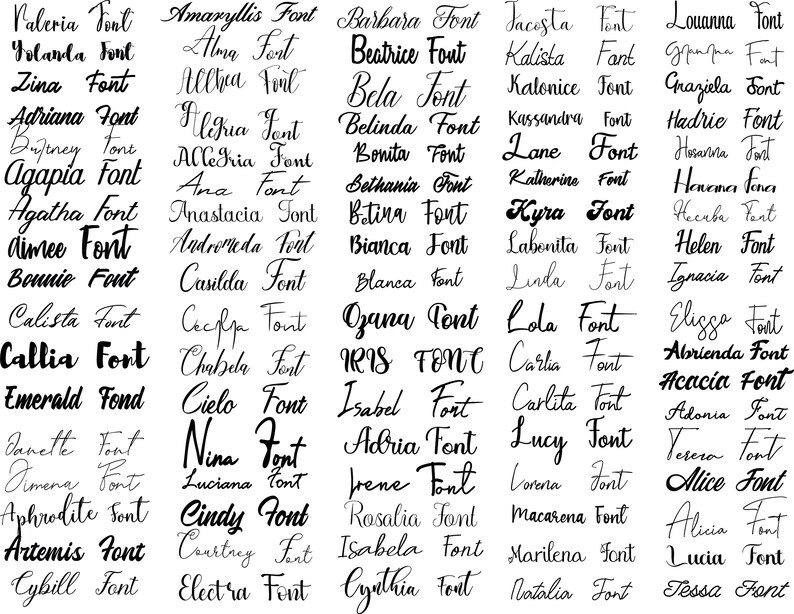 Valeria Font
Yolanda Font
Zina Font
Adriana Font
Britney Font
Agapia Font
Agatha Font
Aimee Font
Bonnie Font
Calista Font
Callia Font
Emerald Fond
Janette Font
Jimena Font
Aphrodite Font
Artemis Font
Cybill Font
Amaryllis Font
Alma Font
Allthea Font
Alegria Font
Allegria Font
Ana Font
Anastacia Font
Andromeda Font
Casilda Font
Cecylya Font
Chabela Font
Cielo Font
Nina Font
Luciana Font
Cindy Font
Courtney Font
Electra Font
Barbara Font
Beatrice Font
Bela Font
Belinda Font
Bonita Font
Bethania Font
Betina Font
Bianca Font
Blanca Font
Ozana Font
IRIS FONT
Isabel Font
Adria Font
Irene Font
Rosalia Font
Isabela Font
Cynthia Font
Jacosta Font
Kalista Font
Kalonice Font
Kassandra Font
Lane Font
Katherine Font
Kyra Font
Labonita Font
Linda Font
Lola Font
Carlia Font
Carlita Font
Lucy Font
Lorena Font
Macarena Font
Marilena Font
Natalia Font
Louanna Font
Font
Graziela Font
Hadrie Font
Hosanna Font
Havana Fona
Hecuba Font
Helen Font
Ignacia Font
Elissa Font
Abrienda Font
Acacia Font
Adonia Font
Tereza Font
Alice Font
Alicia Font
Lucia Font
Tessa Font